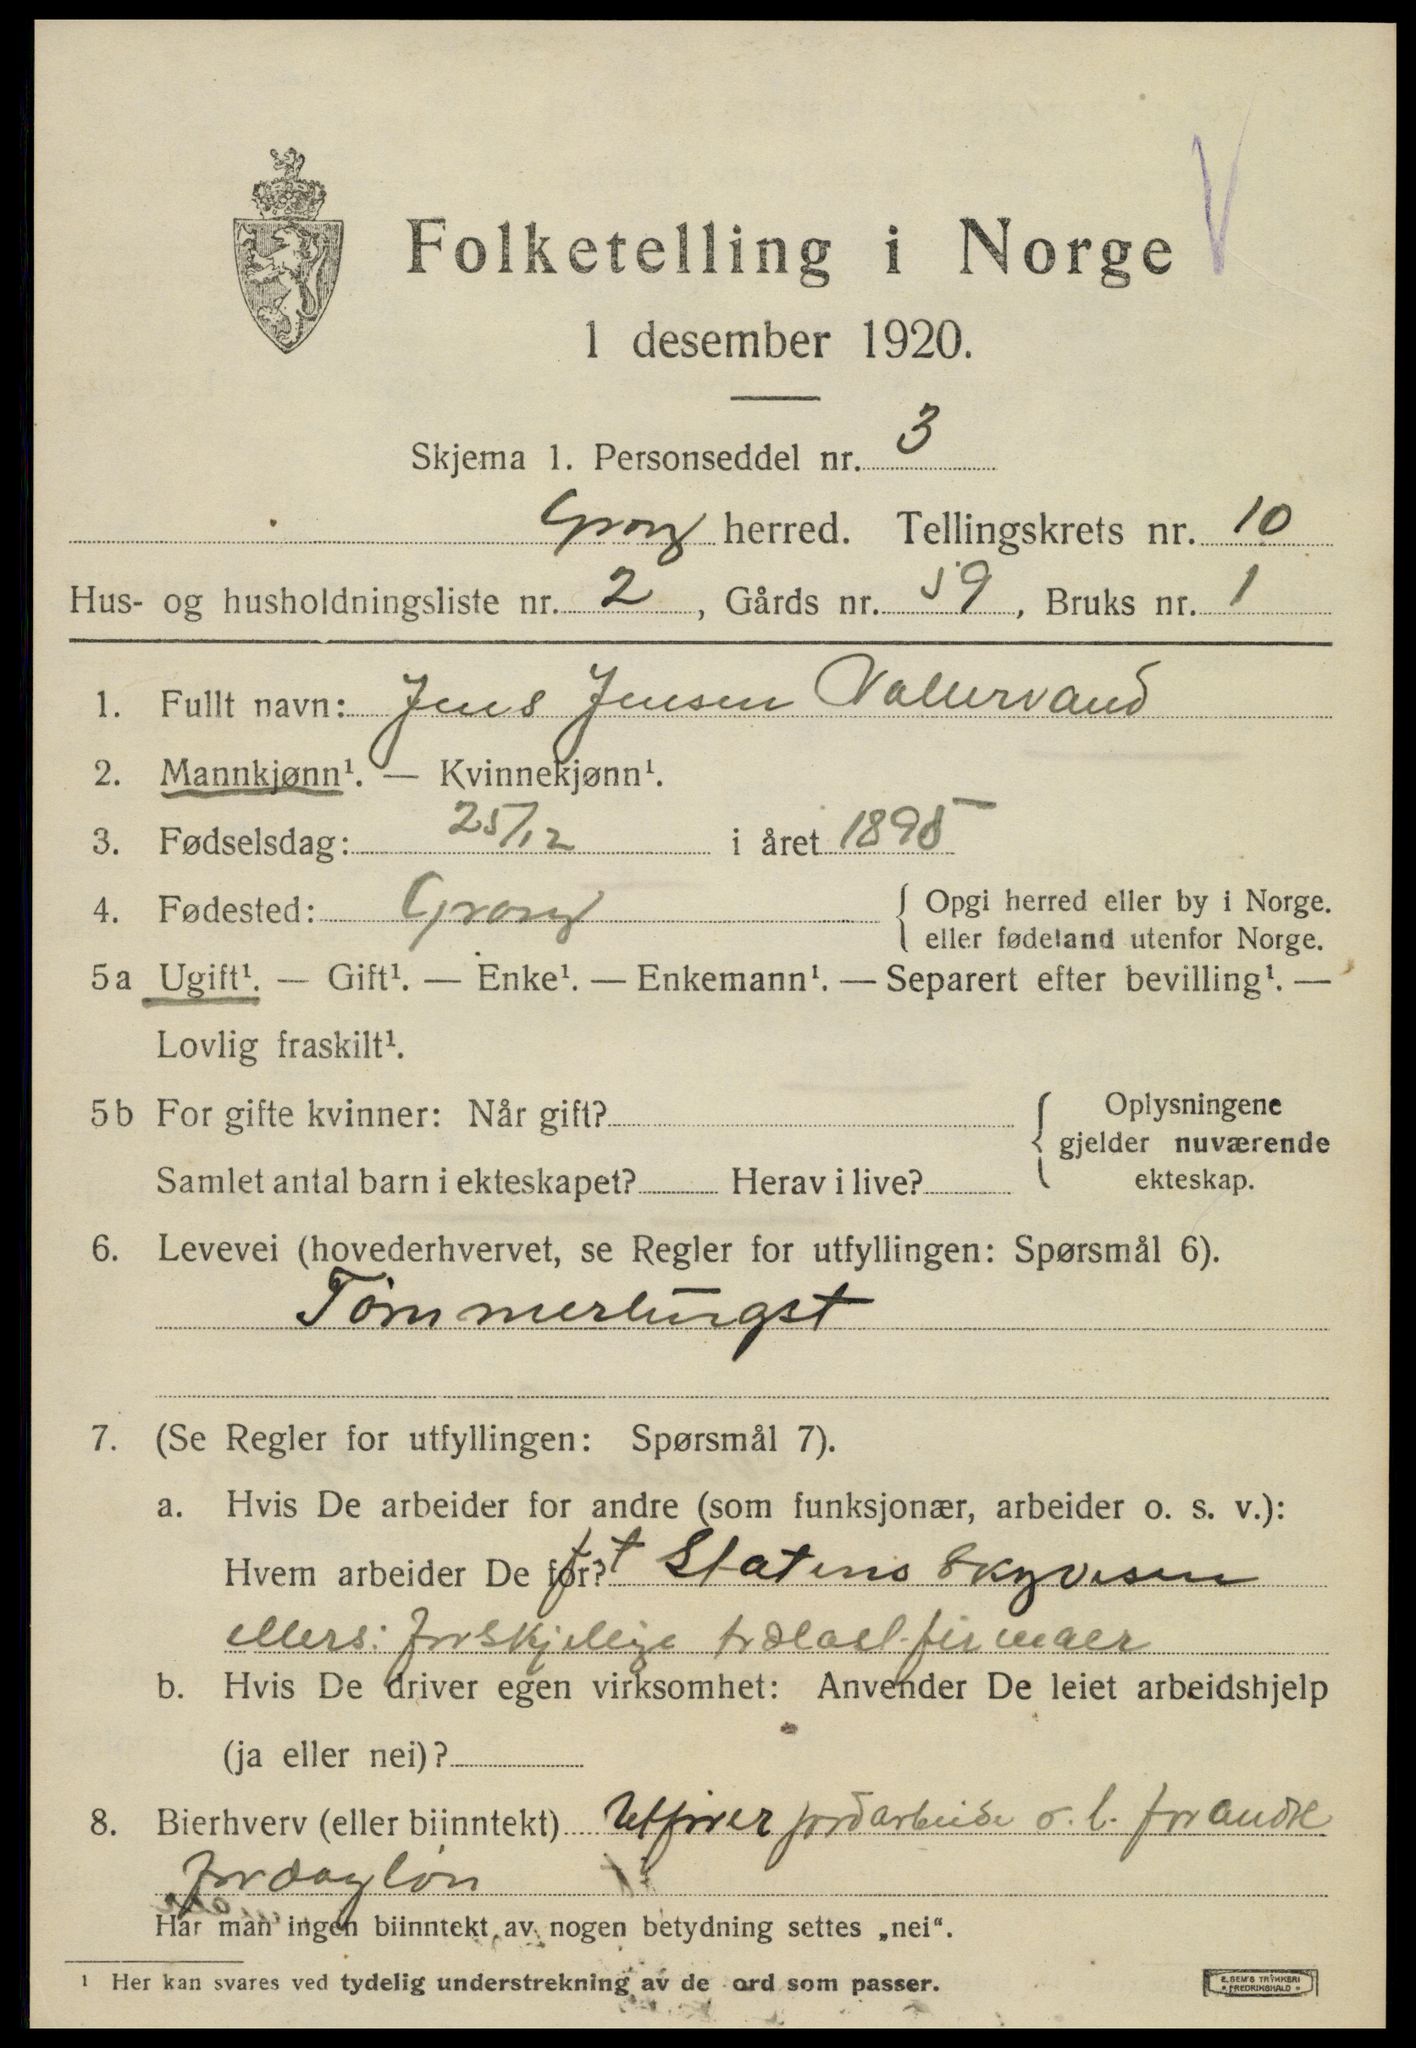 Folketelling i Norge
1 desember 1920.
Skjema 1. Personseddel nr. 3
Grong herred. Tellingskrets nr. 10
Hus- og husholdningsliste nr. 2, Gårds nr. 59, Bruks nr. 1
1. Fullt navn: Jens Jensen Vallervand
2. Mannkjønn¹. — Kvinnekjønn¹.
3. Fødselsdag: 25/12 i året 1895
4. Fødested: Grong { Opgi herred eller by i Norge.
eller fødeland utenfor Norge.
5a Ugift¹. — Gift¹. — Enke¹. — Enkemann¹. — Separert efter bevilling¹. —
Lovlig fraskilt¹.
5b For gifte kvinner: Når gift? { Oplysningene
gjelder nuværende
ekteskap.
Samlet antal barn i ekteskapet? Herav i live?
6. Levevei (hovederhvervet, se Regler for utfyllingen: Spørsmål 6).
Tømmerhugst
7. (Se Regler for utfyllingen: Spørsmål 7).
a. Hvis De arbeider for andre (som funksjonær, arbeider o. s. v.):
Hvem arbeider De for? ft Statens Skogvesen
ellers: forskjellige trælast-firmaer
b. Hvis De driver egen virksomhet: Anvender De leiet arbeidshjelp
(ja eller nei)?
8. Bierhverv (eller biinntekt) Utfører jordarbeide o. l. for andre
for dagløn
Har man ingen biinntekt av nogen betydning settes „nei“.
¹ Her kan svares ved tydelig understrekning av de ord som passer.
E. SEM'S TRYKKERI
FREDRIKSHALD